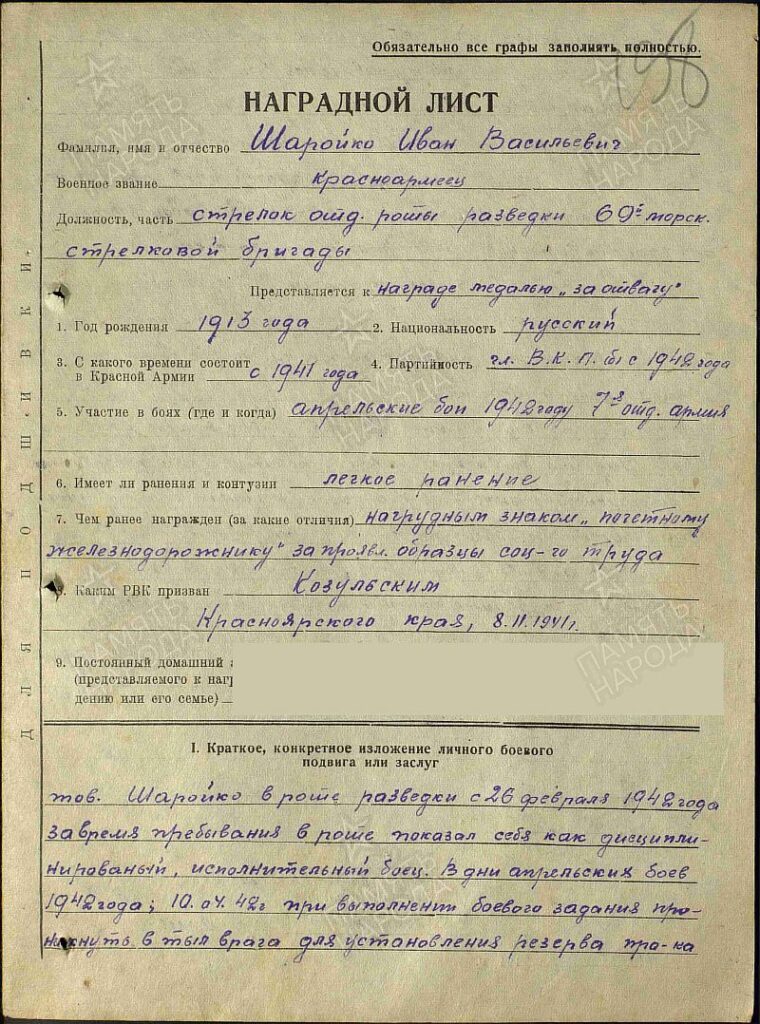 Обязательно все графы заполнять полностью.
198
НАГРАДНОЙ ЛИСТ
Фамилия, имя и отчество Шаройко Иван Васильевич
Военное звание красноармеец
Должность, часть стрелок отд. роты разведки 69й морск.
стрелковой бригады
Представляется к награде медалью „за отвагу"
1. Год рождения 1913 года 2. Национальность русский
3. С какого времени состоит в Красной Армии с 1941 года 4. Партийность чл. В.К.П.(б) с 1942 года
5. Участие в боях (где и когда) апрельские бои 1942 году 7я отд. армия
6. Имеет ли ранения и контузии легкое ранение
7. Чем ранее награжден (за какие отличия) нагрудным знаком „почетному
железнодорожнику" за проявл. образцы соц-го труда
8. Каким РВК призван Козульским
Красноярского края, 8.11.1941г.
9. Постоянный домашний
(представляемого к наг
дению или его семье)
ДЛЯ ПОДШИВКИ.
I. Краткое, конкретное изложение личного боевого
подвига или заслуг
тов. Шаройко в роте разведки с 26 февраля 1942 года
за время пребывания в роте показал себя как дисципли-
нированый, исполнительный боец. В дни апрельских боев
1942 года; 10.04.42г при выполнении боевого задания про-
никнуть в тыл врага для установления резерва пр-ка
ПАМЯТЬ НАРОДА